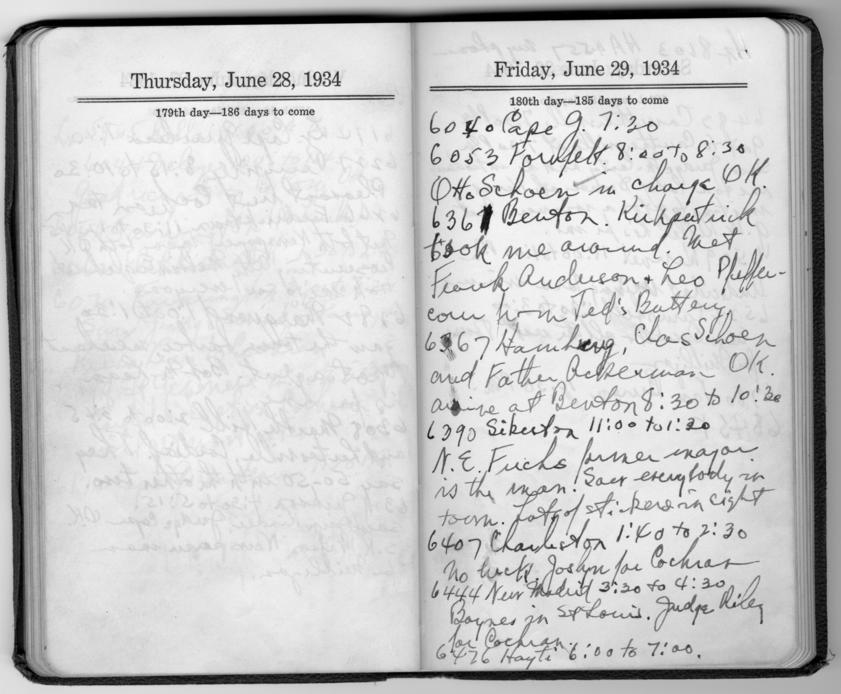 Thursday, June 28, 1934
179th day—186 days to come
Friday, June 29, 1934
180th day—185 days to come
6040 Cape G. 7:30
6053 Fornfelt. 8:00 to 8:30
Otto Schoen in charge OK.
6367 Benton. Kirkpatrick
took me around. Met
Frank Anderson + Leo Pfeffer-
corn from Ted's Battery
6367 Hamburg, Chas Schoen
and Father Ackerman OK.
arrive at Benton 8:30 to 10:30
6390 Sikeston 11:00 to 1:20
N.E. Fuchs former mayor
is the man. Saw everybody in
town. Lots of stickers in sight
6407 Charleston 1:40 to 2:30
No luck. Joslyn for Cochran
6444 New Madrid 3:30 to 4:30
Baynes in St Louis. Judge Riley
for Cochran.
6476 Hayti 6:00 to 7:00.